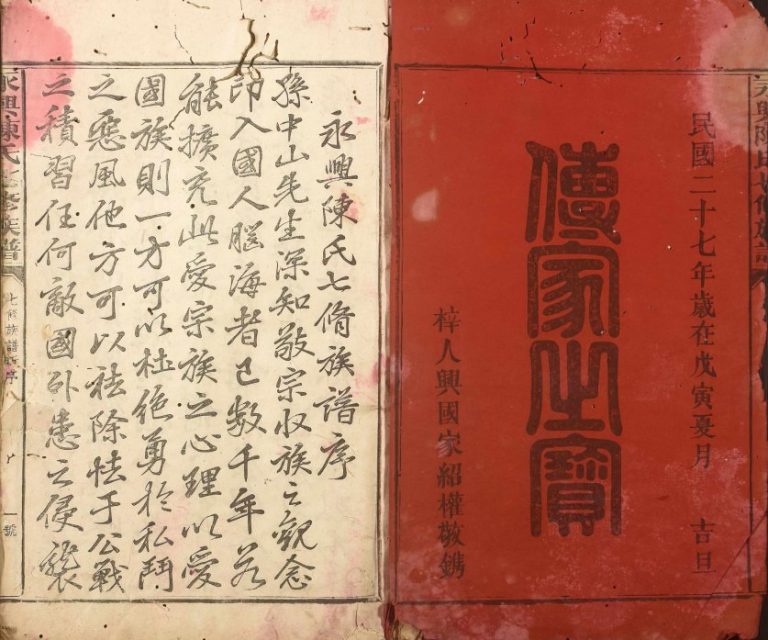 永興陳氏七修族譜
民國二十七年歲在戊寅夏月 吉旦
傳家之寶
梓人興國家紹權敬鐫
永興陳氏七脩族譜序
孫中山先生深知敬宗收族之觀念
印入國人腦海者已數千年若
能擴充此愛宗族之心理以愛
國族則一方可以杜絕勇於私鬥
之惡風他方可以祛除怯于公戰
之積習任何敵國外患之侵襲
永興陳氏七修族譜
七修族譜序
一號